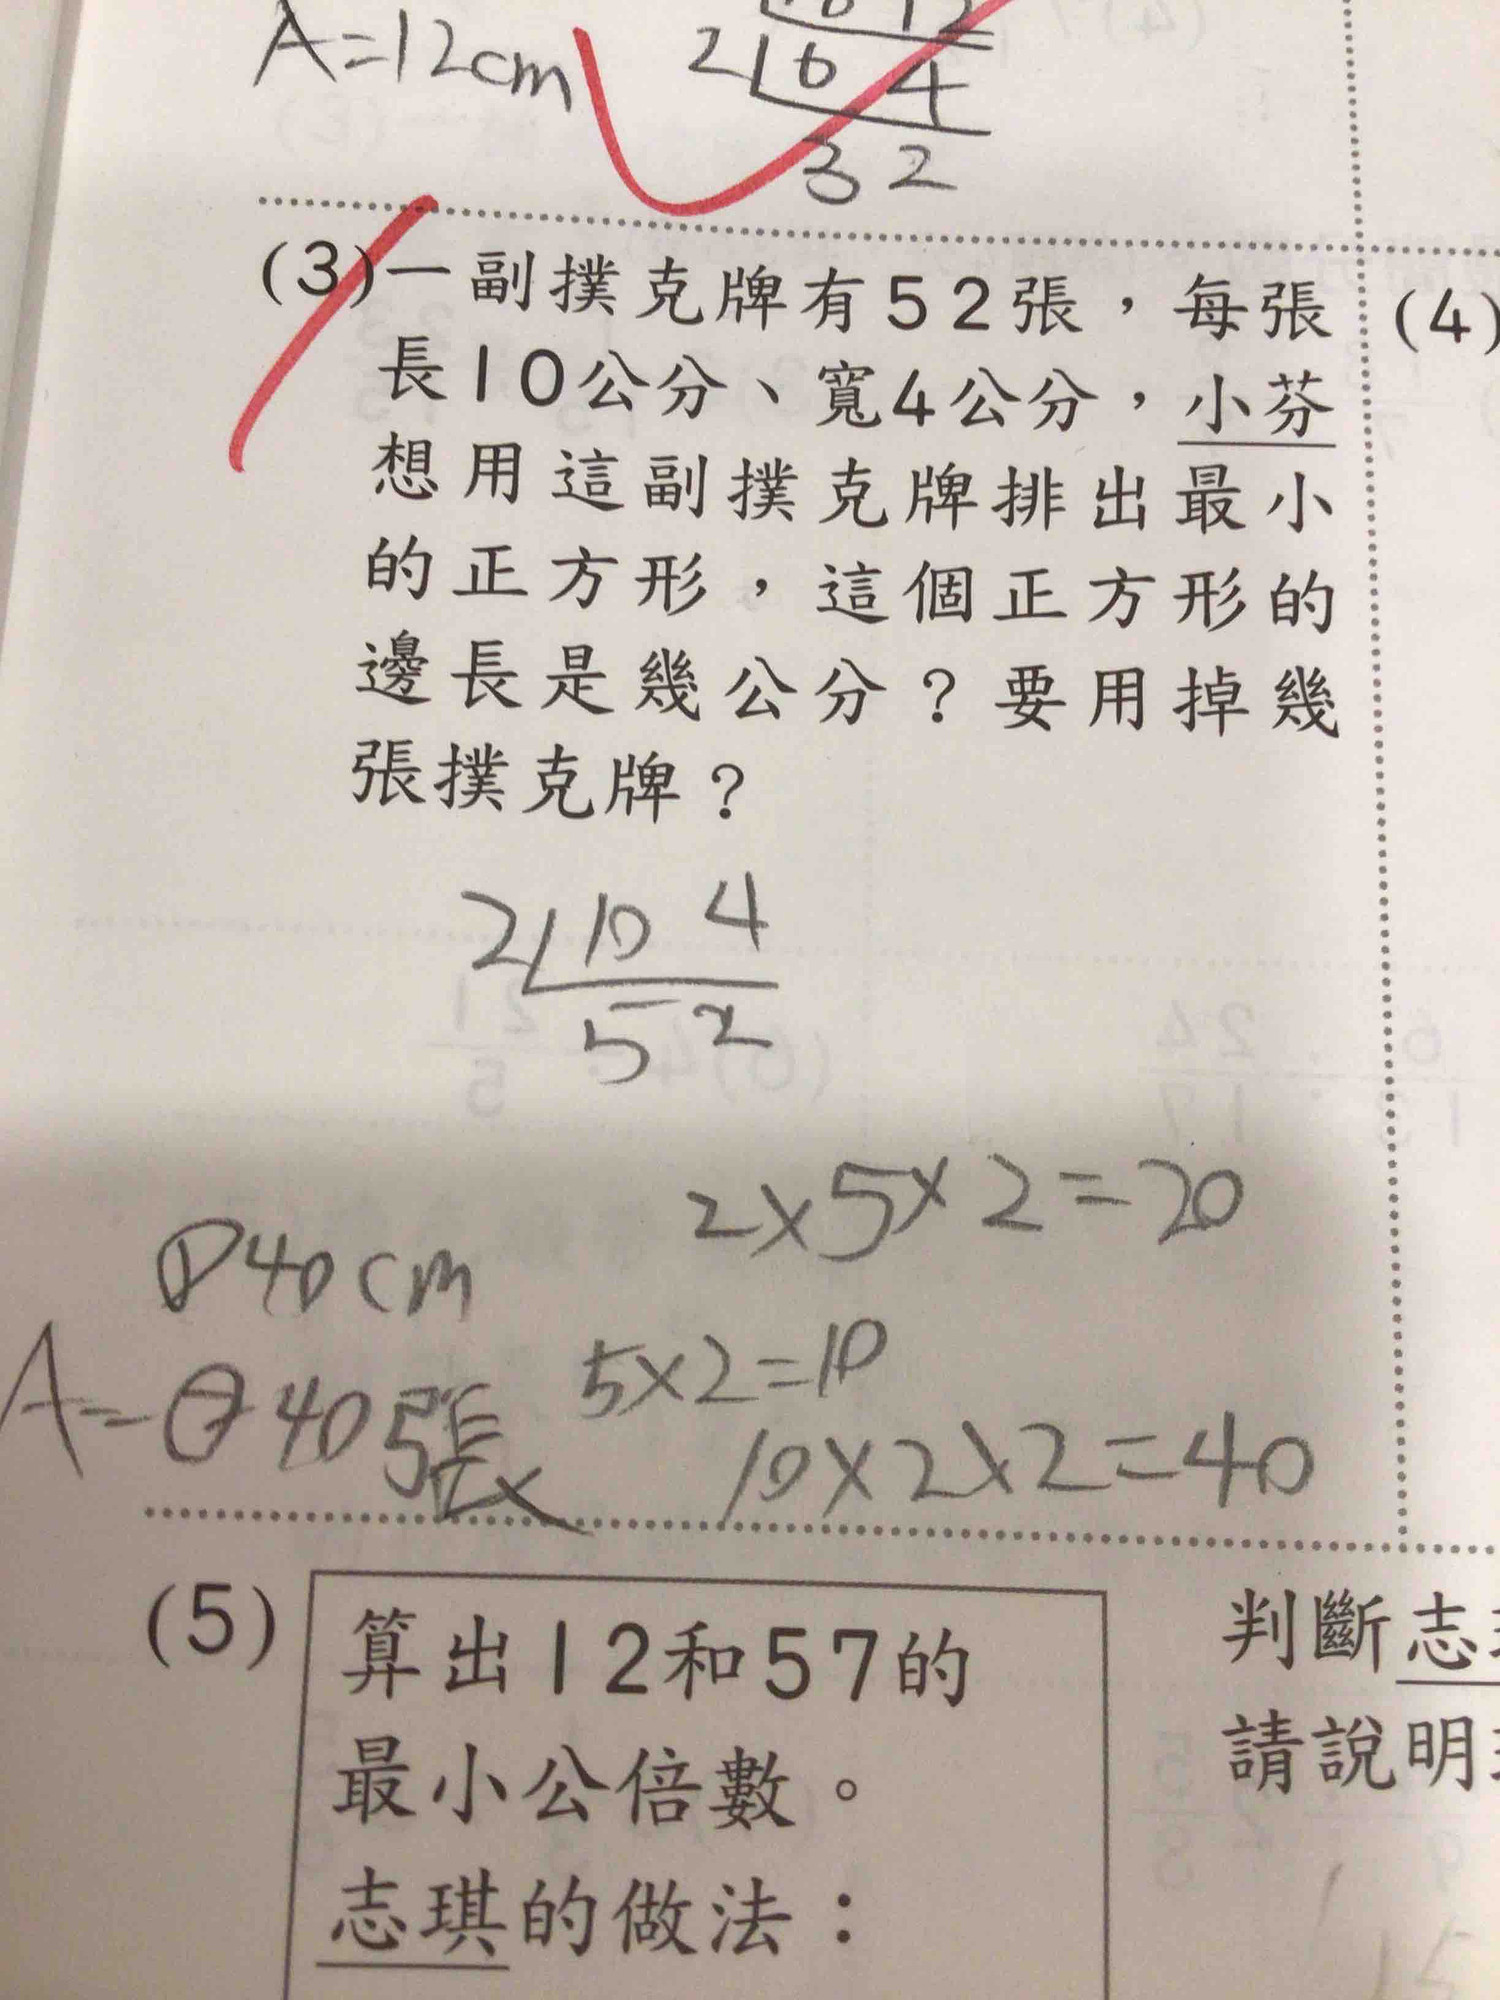 A=12cm
12
2 6 4
3 2
(3)一副撲克牌有52張，每張
長10公分、寬4公分，小芬
想用這副撲克牌排出最小
的正方形，這個正方形的
邊長是幾公分？要用掉幾
張撲克牌？
(4)
2 10 4
5 2
2×5×2=20
①40cm
5×2=10
A=②40張
10×2×2=40
(5)
算出12和57的
最小公倍數。
志琪的做法：
判斷志
請說明